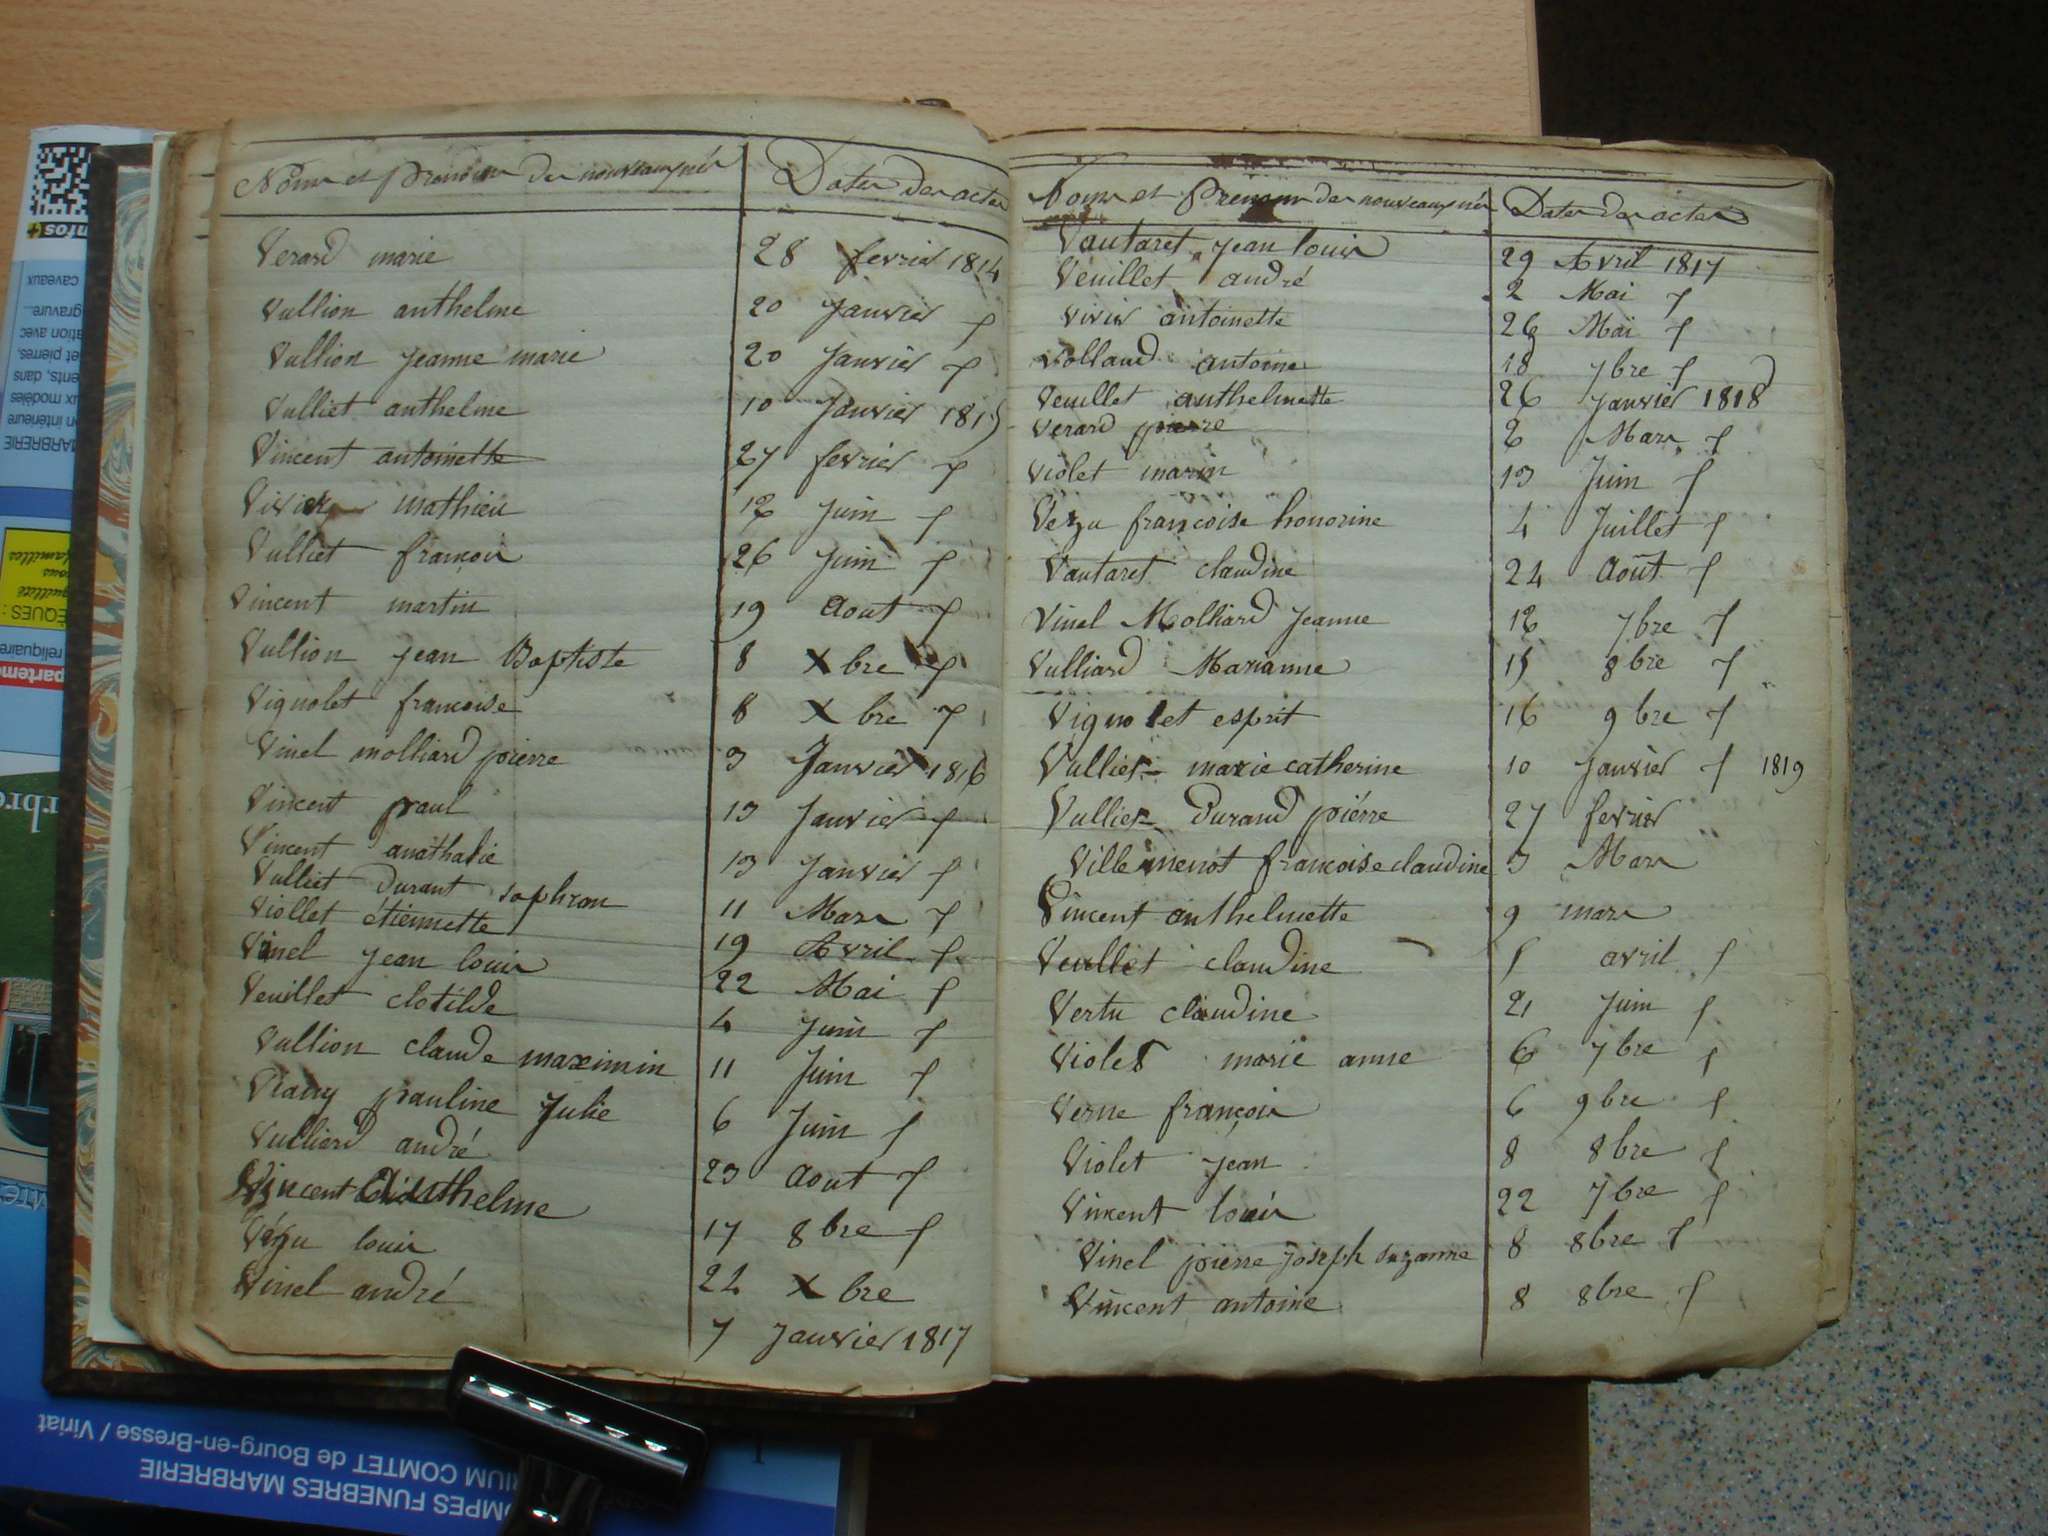 Noms et Prenoms des nouveaux nés Dates des actes
Verard marie 28 fevrier 1814
Vullion anthelme 20 Janvier
Vullion Jeanne marie 20 Janvier
Vulliet anthelme 10 Janvier 1815
Vincent antoinette 27 fevrier
Vivier mathieu 12 Juin
Vulliet françois 26 Juin
Vincent martin 19 Aout
Vullion Jean Baptiste 8 Xbre
Vignolet francoise 8 Xbre
Vinel molliard pierre 3 Janvier 1816
Vincent paul 13 Janvier
Vincent anathalie 13 Janvier
Vulliet Durant sophron 11 Mars
Viollet étiennette 19 Avril
Vinel Jean louis 22 Mai
Veuillet clotilde 4 Juin
Vullion claude maximin 11 Juin
pauline Julie 6 Juin
Vulliard andré 23 Aout
Vincent Anthelme 17 8bre
Vézu louis 24 Xbre
Vinel andré 7 Janvier 1817
Noms et Prenoms des nouveaux nés Dates des actes
Vautaret Jean louis 29 Avril 1817
Veuillet andré 2 Mai
Vivier antoinette 26 Mai
Volland antoine 18 7bre
Veuillet anthelmette 26 Janvier 1818
Verard pierre 2 Mars
Violet marin 13 Juin
Vezu françoise honorine 4 Juillet
Vautaret claudine 24 Août
Vinel Molliard Jeanne 12 7bre
Vulliard Marianne 15 8bre
Vignolet esprit 16 9bre
Vulliet marie catherine 10 Janvier 1819
Vulliet Durand pierre 27 fevrier
Villemenot francoise claudine 3 Mars
Vincent anthelmette 9 mars
Veullet claudine 5 avril
Vertu claudine 21 Juin
Violet marie anne 6 7bre
Verne françois 6 9bre
Violet Jean 8 8bre
Vincent louis 22 7bre
Vinel pierre Joseph suzanne 8 8bre
Vincent antoine 8 8bre
infos+
caveaux
gravure...
ation avec
et pierres,
ents, dans
ux modèles
n intérieure
MARBRERIE
familles
vous
ÈQUES :
reliquaire
parteme
MPES FUNEBRES MARBRERIE
RIUM COMTET de Bourg-en-Bresse / Viriat